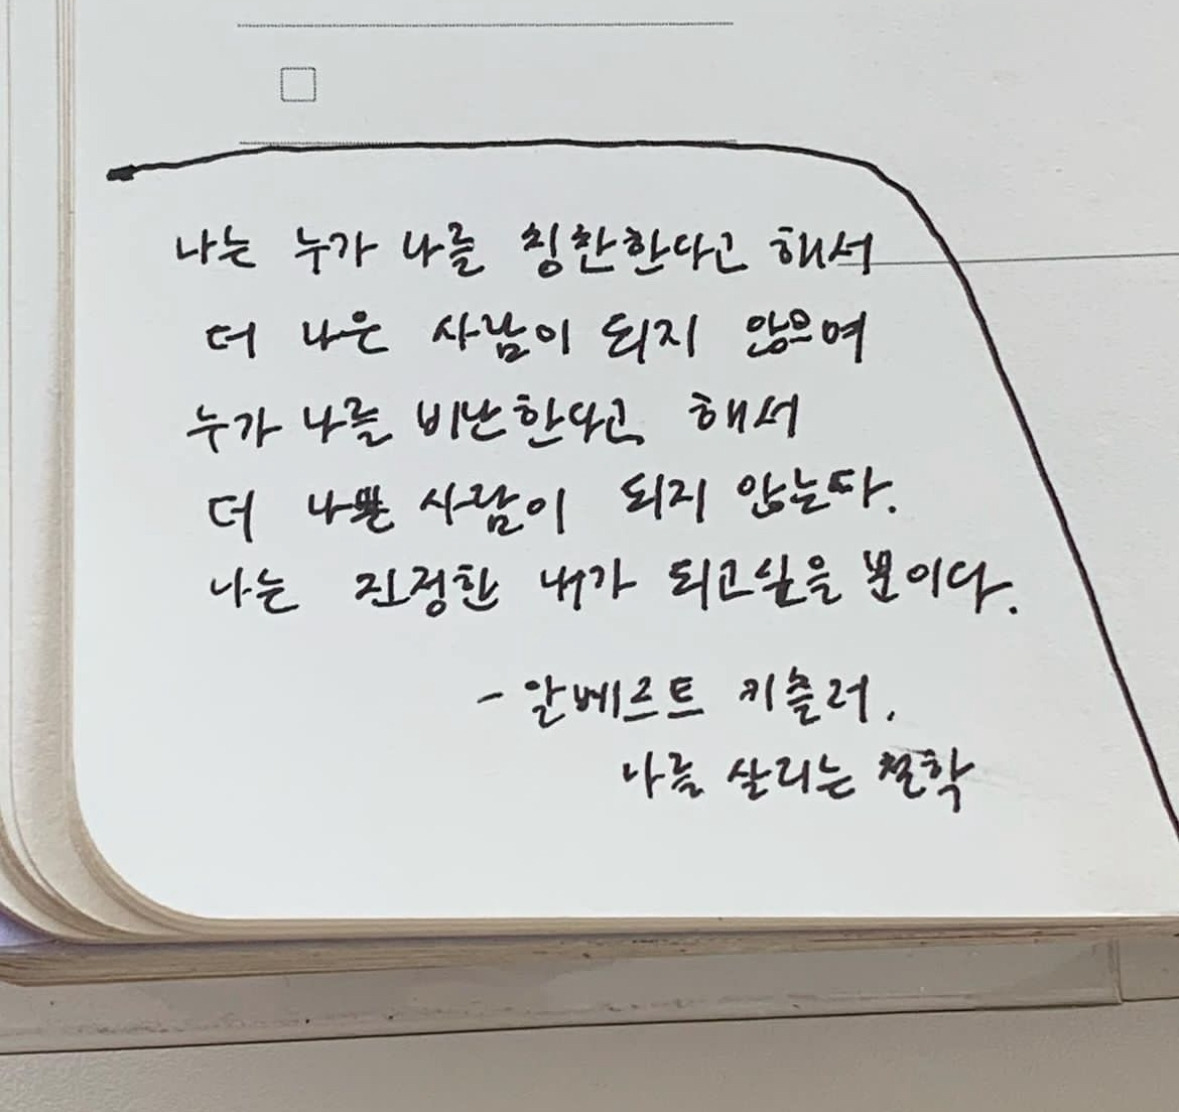 나는 누가 나를 칭찬한다고 해서
더 나은 사람이 되지 않으며
누가 나를 비난한다고 해서
더 나쁜 사람이 되지 않는다.
나는 진정한 내가 되고싶을 뿐이다.
- 알베르트 키츨러.
나를 살리는 철학